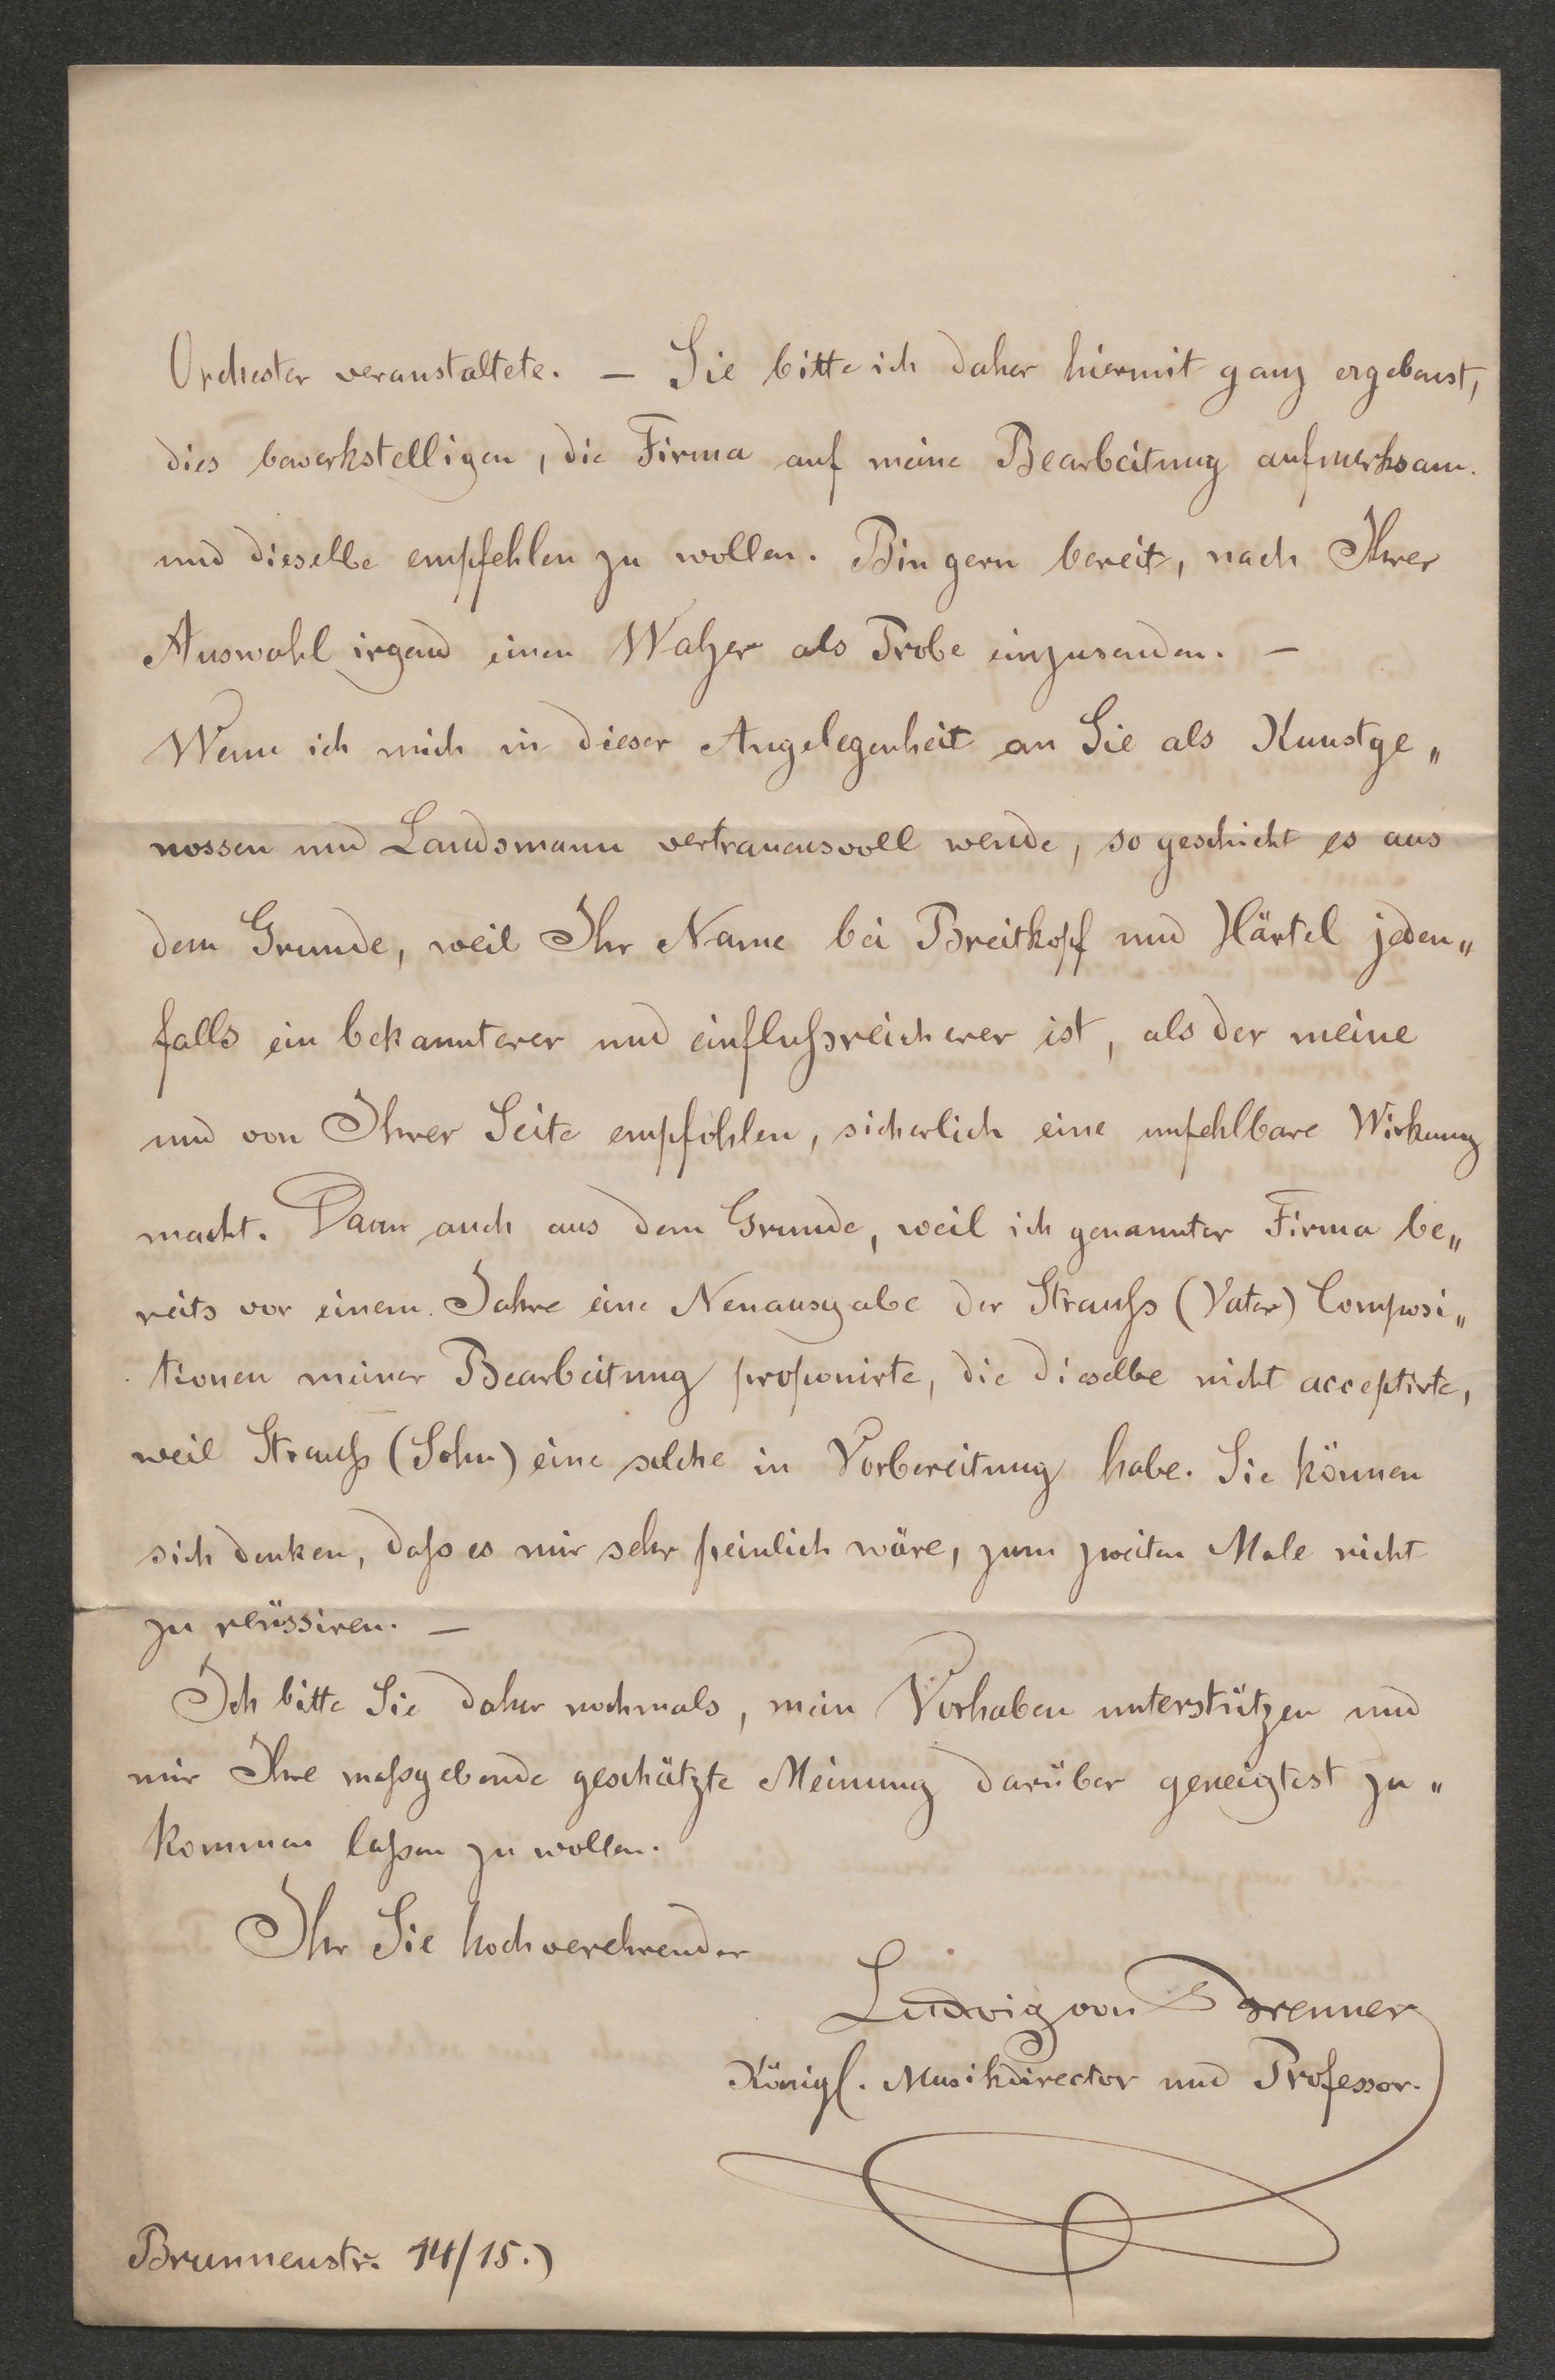 Orchester veranstaltete. — Sie bitte ich daher hiermit ganz ergebenst,
dies bewerkstelligen, die Firma auf meine Bearbeitung aufmerksam
und dieselbe empfehlen zu wollen. Bin gern bereit, nach Ihrer
Auswahl irgend einen Walzer als Probe einzusenden. —
Wenn ich mich in dieser Angelegenheit an Sie als Kunstge„
nossen und Landsmann vertrauensvoll wende, so geschieht es aus
dem Grunde, weil Ihr Name bei Breitkopf und Härtel jeden„
falls ein bekannterer und einflußreicherer ist, als der meine
und von Ihrer Seite empfohlen, sicherlich eine unfehlbare Wirkung
macht. Dann auch aus dem Grunde, weil ich genannter Firma be„
reits vor einem Jahre eine Neuausgabe der Strauß (Vater) Composi„
tionen meiner Bearbeitung proponirte, die dieselbe nicht acceptirte,
weil Strauß (Sohn) eine solche in Vorbereitung habe. Sie können
sich denken, daß es mir sehr peinlich wäre, zum zweiten Male nicht
zu reüssiren. —
Ich bitte Sie daher nochmals, mein Vorhaben unterstützen und
mir Ihre maßgebende geschätzte Meinung darüber geneigtest zu„
kommen laßen zu wollen.
Ihr Sie hochverehrender
Ludwig von Brenner
Königl. Musikdirector und Professor.
Brunnenstr. 14/15.)